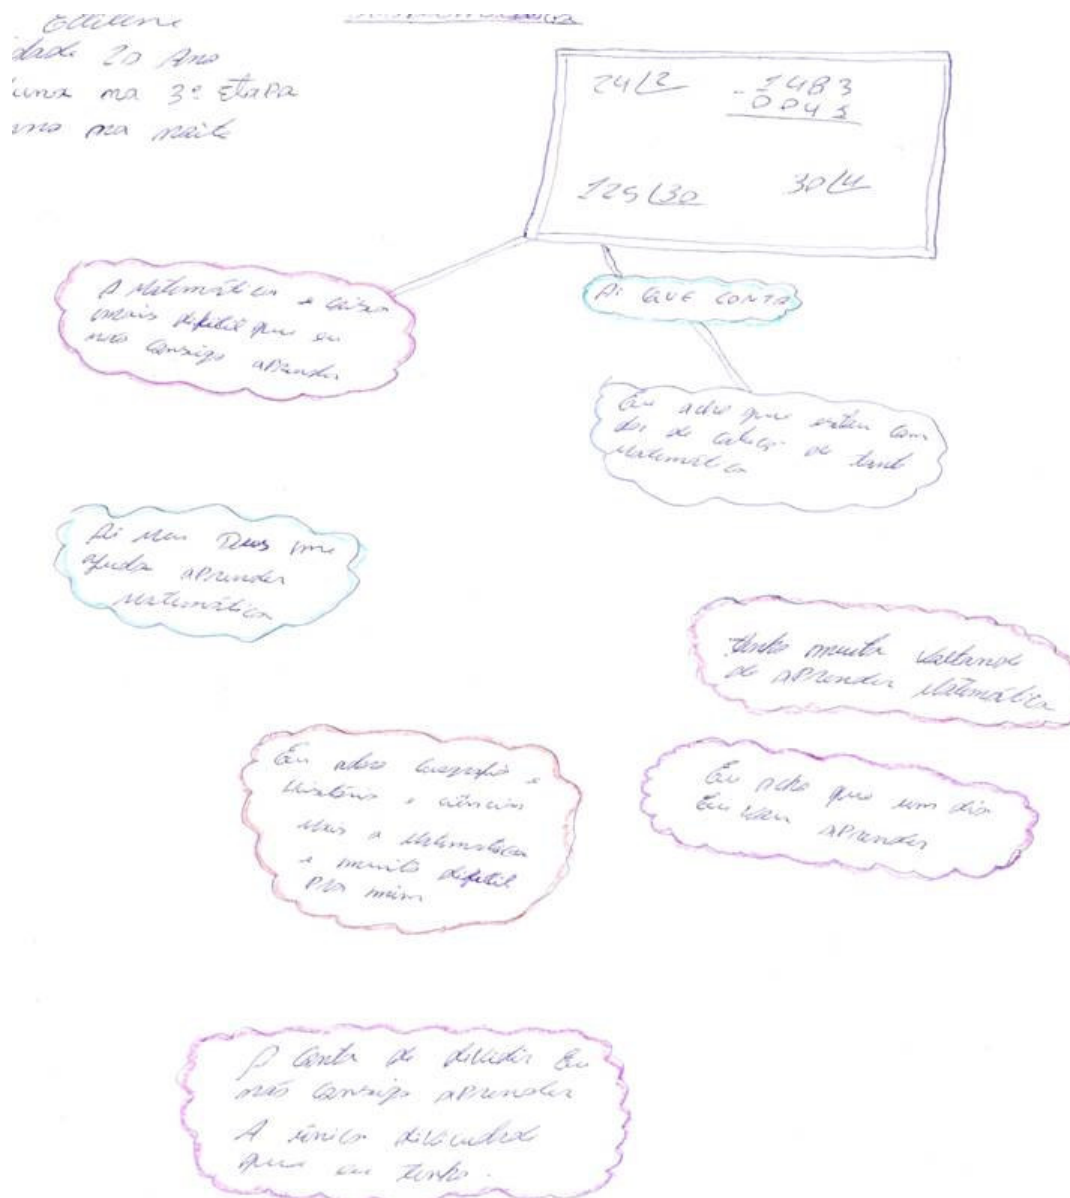 Edilene
idade 20 Ano
na 3ª Etapa
noite
24 2
- 1483
0043
125 30
30 4
A Matematica e coisa
mais dificil que eu
não consigo aprender
Ai QUE CONTA
Eu acho que estou com
dor de cabeça de tant
Matematica
Ai Meu Deus me
ajuda aprender
Matemática
tenho muita
de aprender Matemática
Eu adoro Geografia e
História e ciências
Mais a Matematica
e muito dificil
pra mim
Eu acho que um dia
Eu vou aprender
A Conta de dividir Eu
não consigo aprender
A única
que eu tenho.